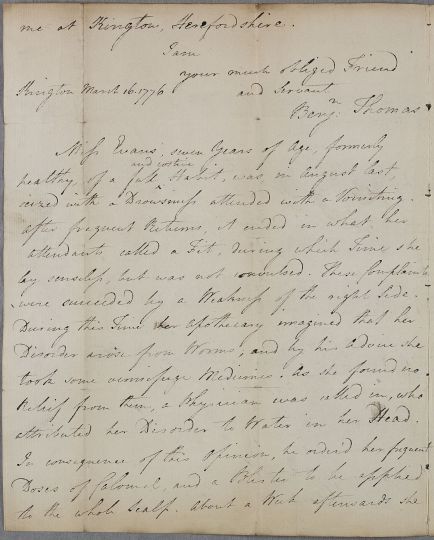 me at Kington, Herefordshire.
I am
your much obliged Friend
Kington March 16. 1776
and Servant
Benjn: Thomas
Miss Evans, seven Years of Age, formerly
and costive
healthy, of a full Habit, was in August last,
seized with a Drowsiness attended with a Vomiting.
after frequent Returns, it ended in what her
attendants called a Fit, during which Time she
lay senseless, but was not convulsed. These Complaints
were succeeded by a Weakness of the right Side.
During this Time her Apothecary imagined that her
Disorder arose from Worms, and by his advice she
took some vermifuge Medicines. As she found no
Relief from them, a Physician was called in, who
attributed her Disorder to Water in her Head.
In consequence of this opinion, he order'd her frequent
Doses of Calomel, and a Blister to be applied
to the whole Scalp. About a Week afterwards she